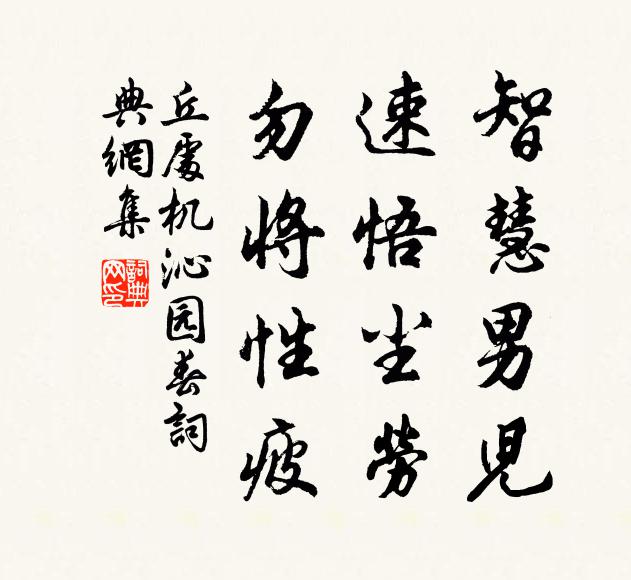 智慧男児
速悟尘勞
勿將性疲
丘處机沁园春詞
典網集
詞典網印